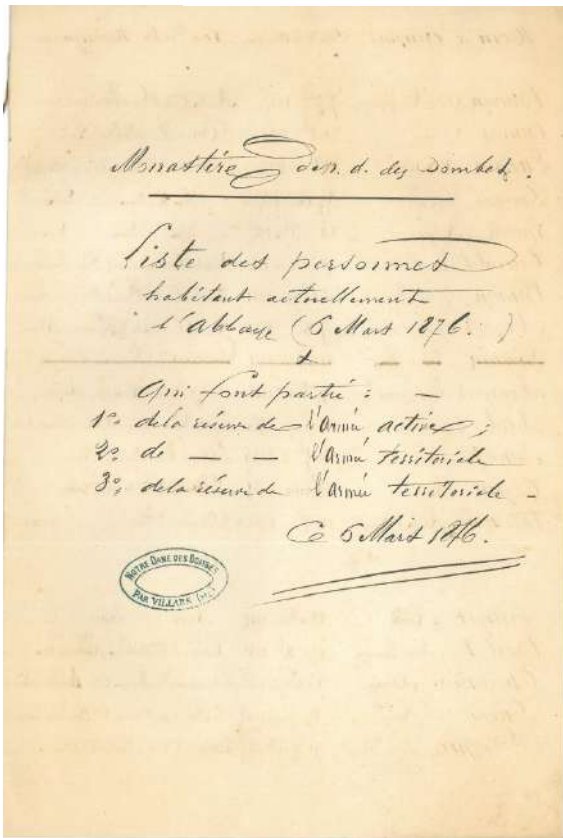 Monastère de n. d. des Dombes.
Liste des personnes
habitant actuellement
l'abbaye (6 Mars 1876.)
+
Qui font partie : —
1º de la réserve de l'armée active ;
2º de — — l'armée territoriale
3º, de la réserve de l'armée territoriale —
Ce 6 Mars 1876.
NOTRE DAME DES DOMBES
PAR VILLARS